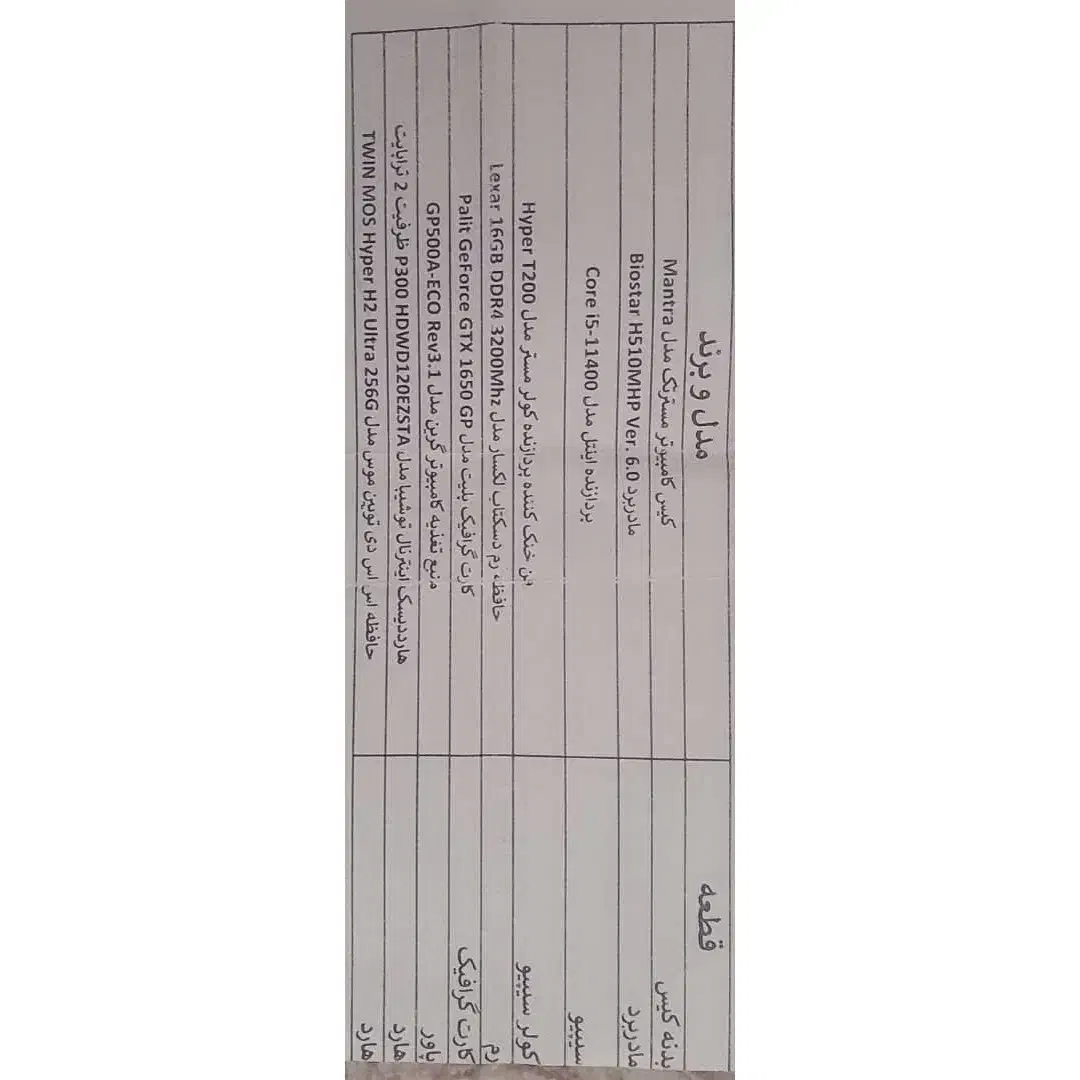 قطعه مدل و برند
بدنه کیس کیس کامپیوتر مسترتک مدل Mantra
مادربرد مادربرد Biostar H510MHP Ver. 6.0
سیپیو پردازنده اینتل مدل Core i5-11400
کولر سیپیو فن خنک کننده پردازنده کولر مستر مدل Hyper T200
رم حافظه رم دسکتاپ لکسار مدل Lexar 16GB DDR4 3200Mhz
کارت گرافیک کارت گرافیک پلیت مدل Palit GeForce GTX 1650 GP
پاور منبع تغذیه کامپیوتر گرین مدل GP500A-ECO Rev3.1
هارد هارددیسک اینترنال توشیبا مدل P300 HDWD120EZSTA ظرفیت 2 ترابایت
هارد حافظه اس اس دی تویین موس مدل TWIN MOS Hyper H2 Ultra 256G